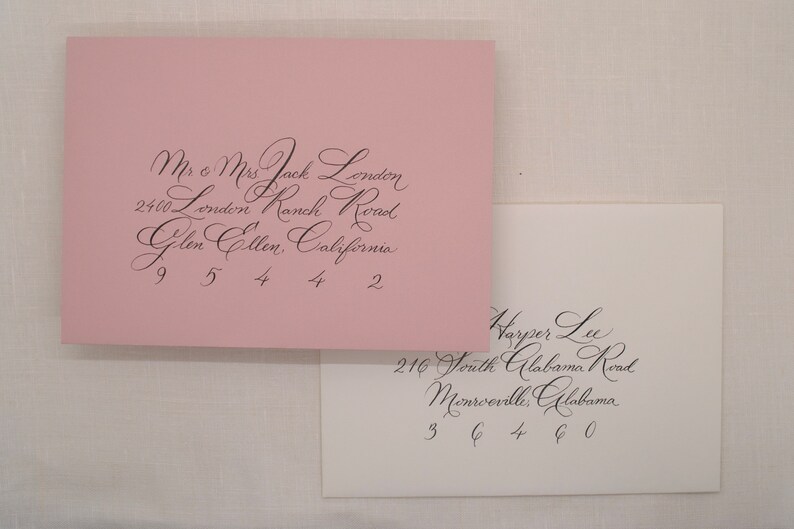 Mr & Mrs Jack London
2400 London Ranch Road
Glen Ellen, California
9 5 4 4 2
Harper Lee
216 South Alabama Road
Monroeville, Alabama
3 6 4 6 0